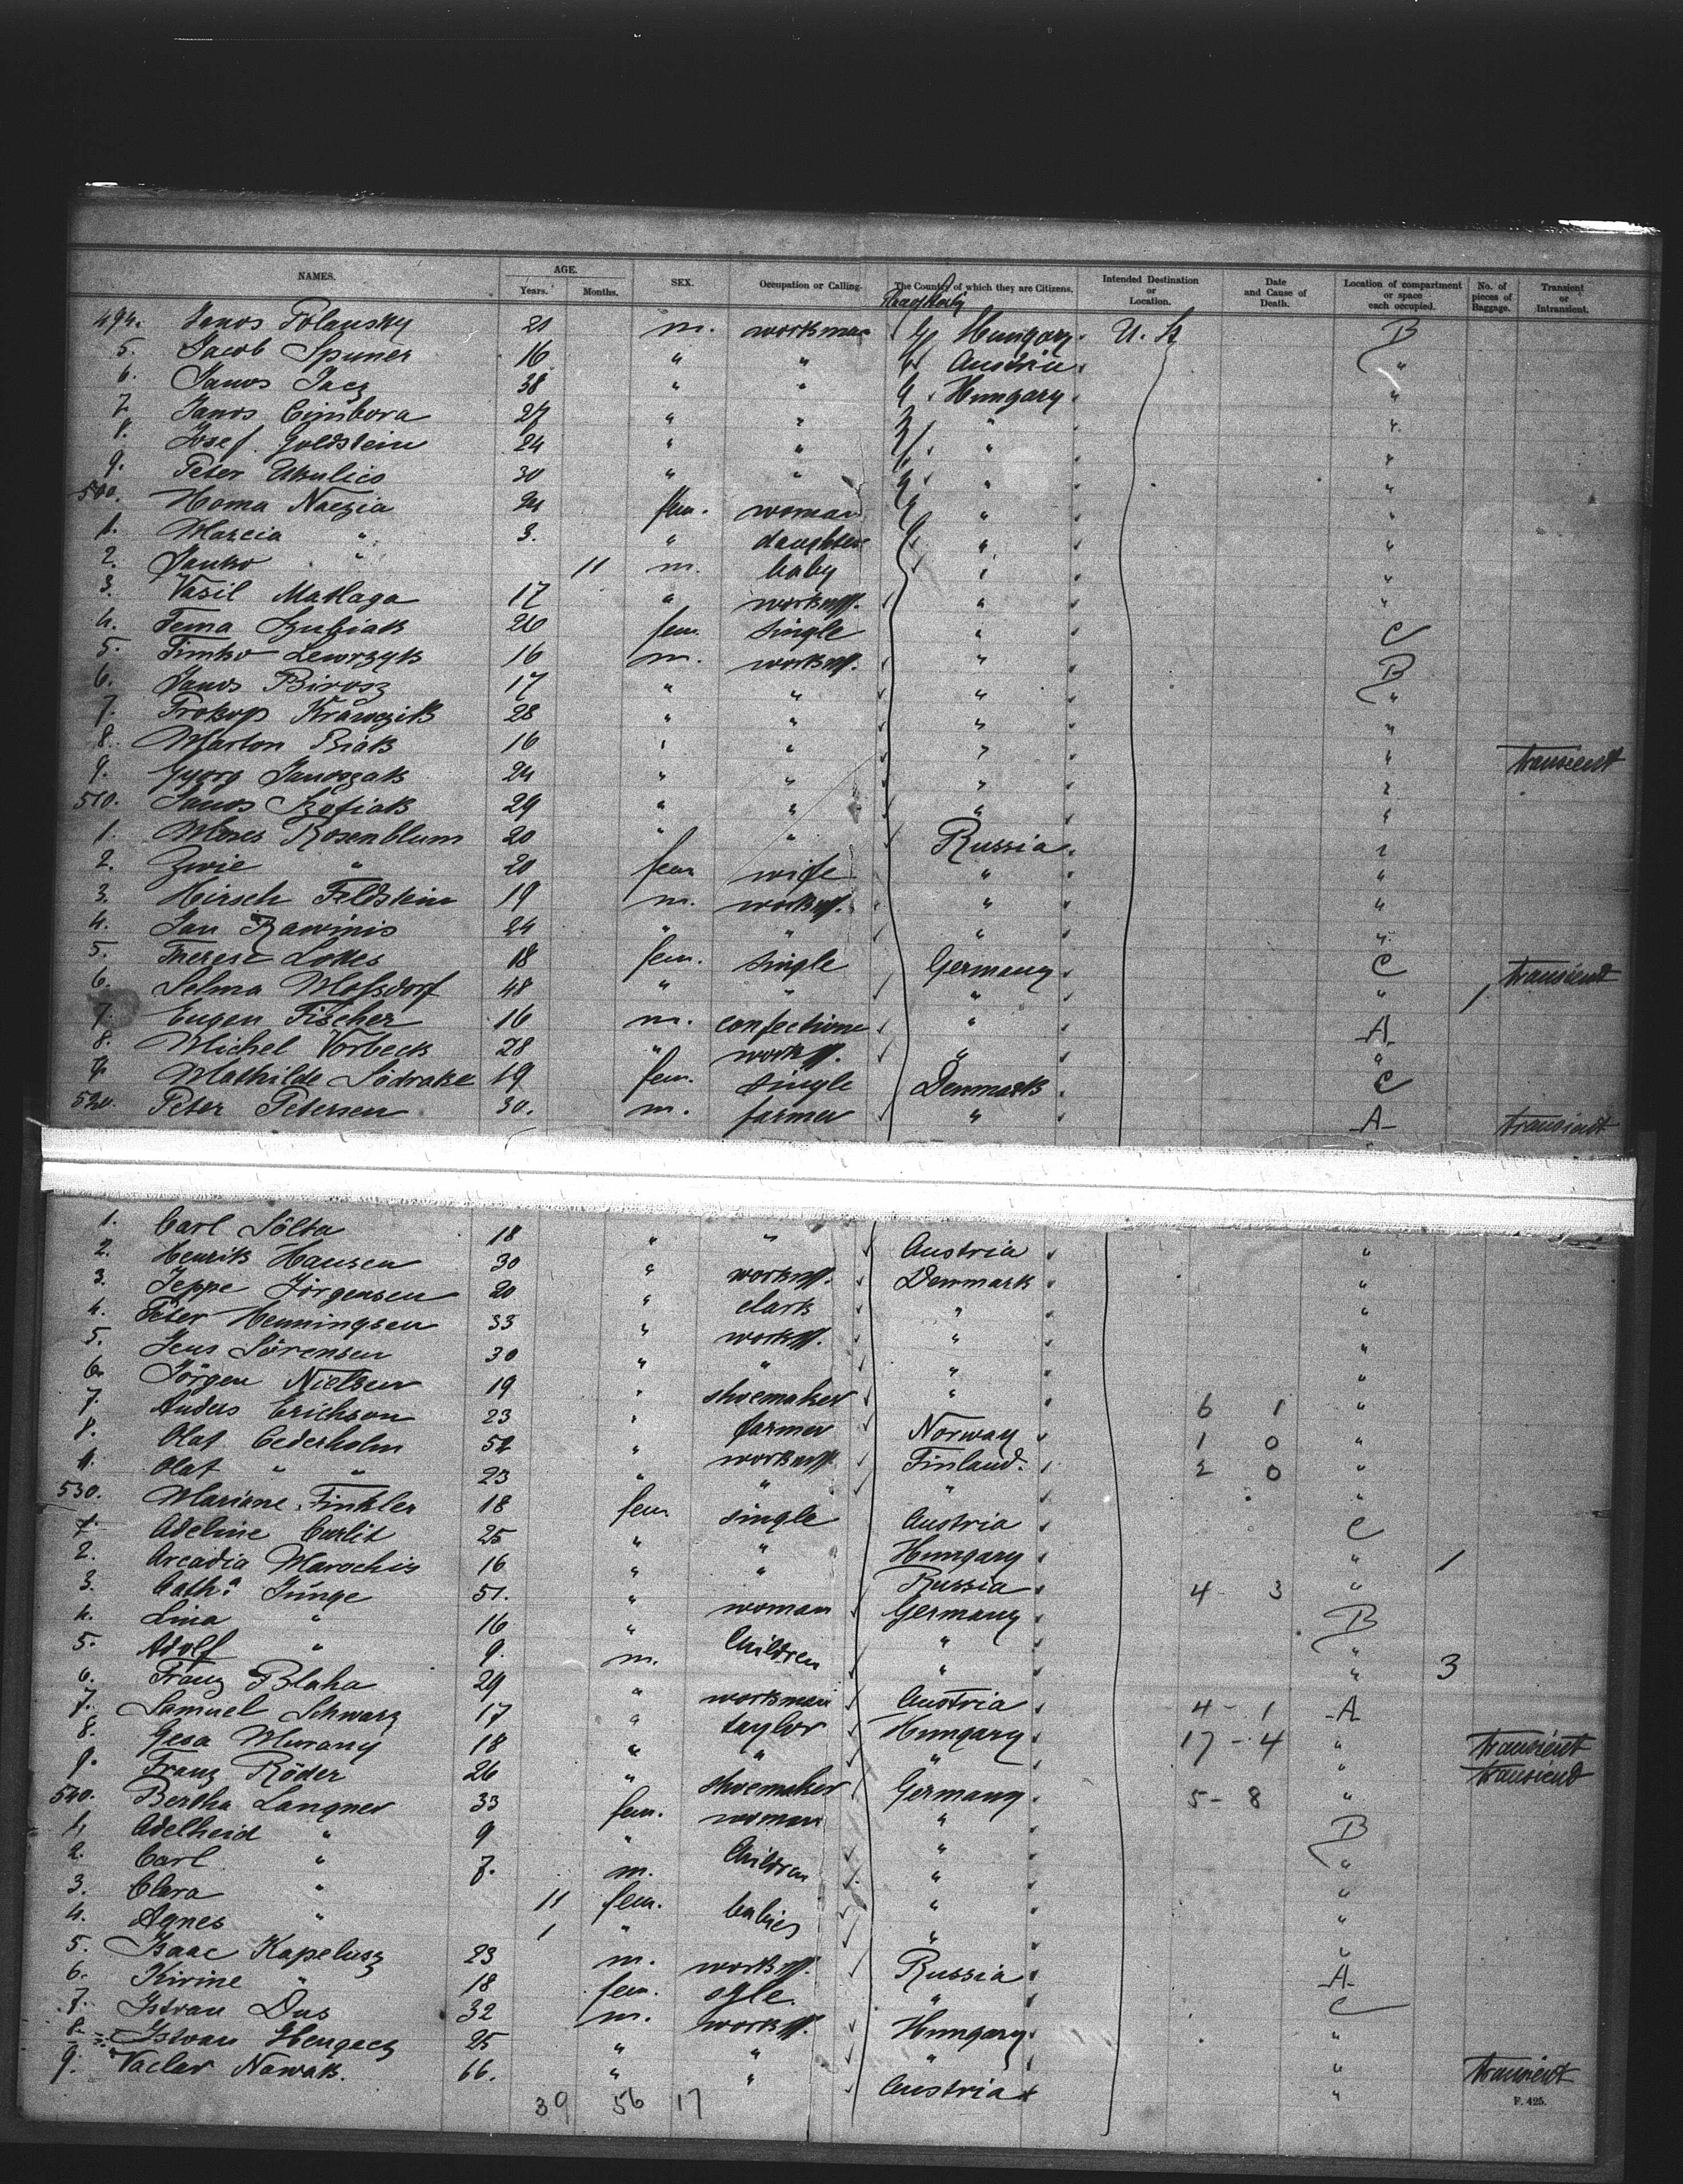 NAMES. AGE. Years. Months. SEX. Occupation or Calling. The Country of which they are Citizens. Intended Destination or Location. Date and Cause of Death. Location of compartment or space each occupied. No. of pieces of Baggage. Transient or Intransient.
494. Janos Polansky 21 m. workman Hungary U. St B
5. Jacob Spuner 16 " " Austria "
6. Janos Jacz 38 " " Hungary "
7. Janos Cimbora 27 " " " "
8. Josef Goldstein 24 " " " "
9. Peter Ukulics 30 " " " "
500. Homa Naczia 24 fem. woman " "
1. Marcia " 3. " daughter " "
2. Janko " 11 m. baby " "
3. Vasil Matlaga 17 " workm. " "
4. Fema 26 fem. single " C
5. Timko Lewrzyk 16 m. workm. " B
6. Janos Birosz 17 " " " "
7. Prokop Krawczik 28 " " " "
8. Marton Biak 16 " " " " transient
9. Gyorg Janoszak 24 " " " "
510. Janos 29 " " " "
1. Moses Rosenblum 20 " " Russia "
2. Zwie " 20 fem wife " "
3. Hirsch Feldstein 19 m. workm. " "
4. Jan Rawinis 24 " " " "
5. Therese Lokes 18 fem. single Germany C transient
6. Selma Mossdorf 48 " " " " 1
7. Eugen Fischer 16 m. confectione " A
8. Michel Vorbeck 28 " workm. " "
9. Mathilde Södrake 19 fem. single Denmark C
520. Peter Petersen 30. m. farmer " A transient
1. Carl Sölta 18 " " Austria "
2. Henrik Hansen 30 " workm. Denmark "
3. Jeppe Jörgensen 20 " clark " "
4. Peter Henningsen 33 " workm. " "
5. Jens Sörensen 30 " " " "
6. Jörgen Nielsen 19 " shoemaker " 6 1 "
7. Anders Erichson 23 " farmer Norway 1 0 "
8. Olaf Cederholm 52 " workm. Finland. 2 0 "
9. Olaf " " 23 " " " "
530. Mariane Finkler 18 fem single Austria C
1. Adeline Carlit 25 " " Hungary " 1
2. Arcadia Marochis 16 " " Russia 4 - 3 "
3. Cath.a Junge 51. " woman Germany B
4. Lina " 16 " Children " "
5. Adolf " 9. m. " " 3
6. Franz Blaha 29 " workman Austria 4 - 1 A
7. Samuel Schwarz 17 " taylor Hungary 17 - 4 " transient
8. Gesa Murany 18 " " " " transient
9. Franz Röder 26 " shoemaker Germany 5 - 8 "
540. Bertha Langner 33 fem. woman " B
1. Adelheid " 9 " Children " "
2. Carl " 7. m. " "
3. Clara " 11 fem. babies " "
4. Agnes " 1 " " "
5. Isaac Kapelusz 23 m. workm. Russia A
6. Kirine " 18 fem. sgle. " C
7. Istvan Dus 32 m. workm. Hungary "
8. Istvan Hengacz 25 " " " "
9. Vaclav Nowak. 66. " " Austria " transient
39 56 17
F. 425.